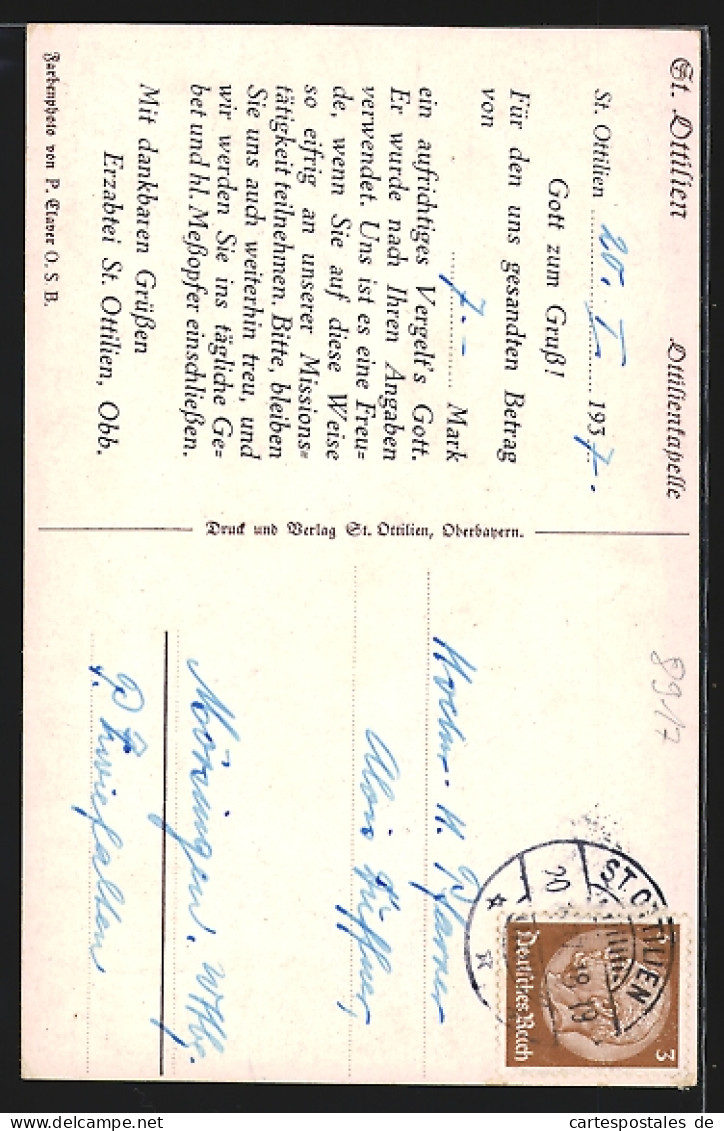 St. Ottilien Ottilienkapelle
St. Ottilien 20. I. 1937.
Gott zum Gruß!
Für den uns gesandten Betrag
von
7.- Mark
ein aufrichtiges Vergelt's Gott.
Er wurde nach Ihren Angaben
verwendet. Uns ist es eine Freu=
de, wenn Sie auf diese Weise
so eifrig an unserer Missions=
tätigkeit teilnehmen. Bitte, bleiben
Sie uns auch weiterhin treu, und
wir werden Sie ins tägliche Ge=
bet und hl. Meßopfer einschließen.
Mit dankbaren Grüßen
Erzabtei St. Ottilien, Obb.
Farbenphoto von P. Claver O. S. B.
Druck und Verlag St. Ottilien, Oberbayern.
8917
ST. OTTILIEN
20
Deutsches Reich
3
Hochw. H. Pfarrer
Alois
Mörsingen. Wttbg.
P. Zwiefalten
www.delcampe.net
cartespostales de